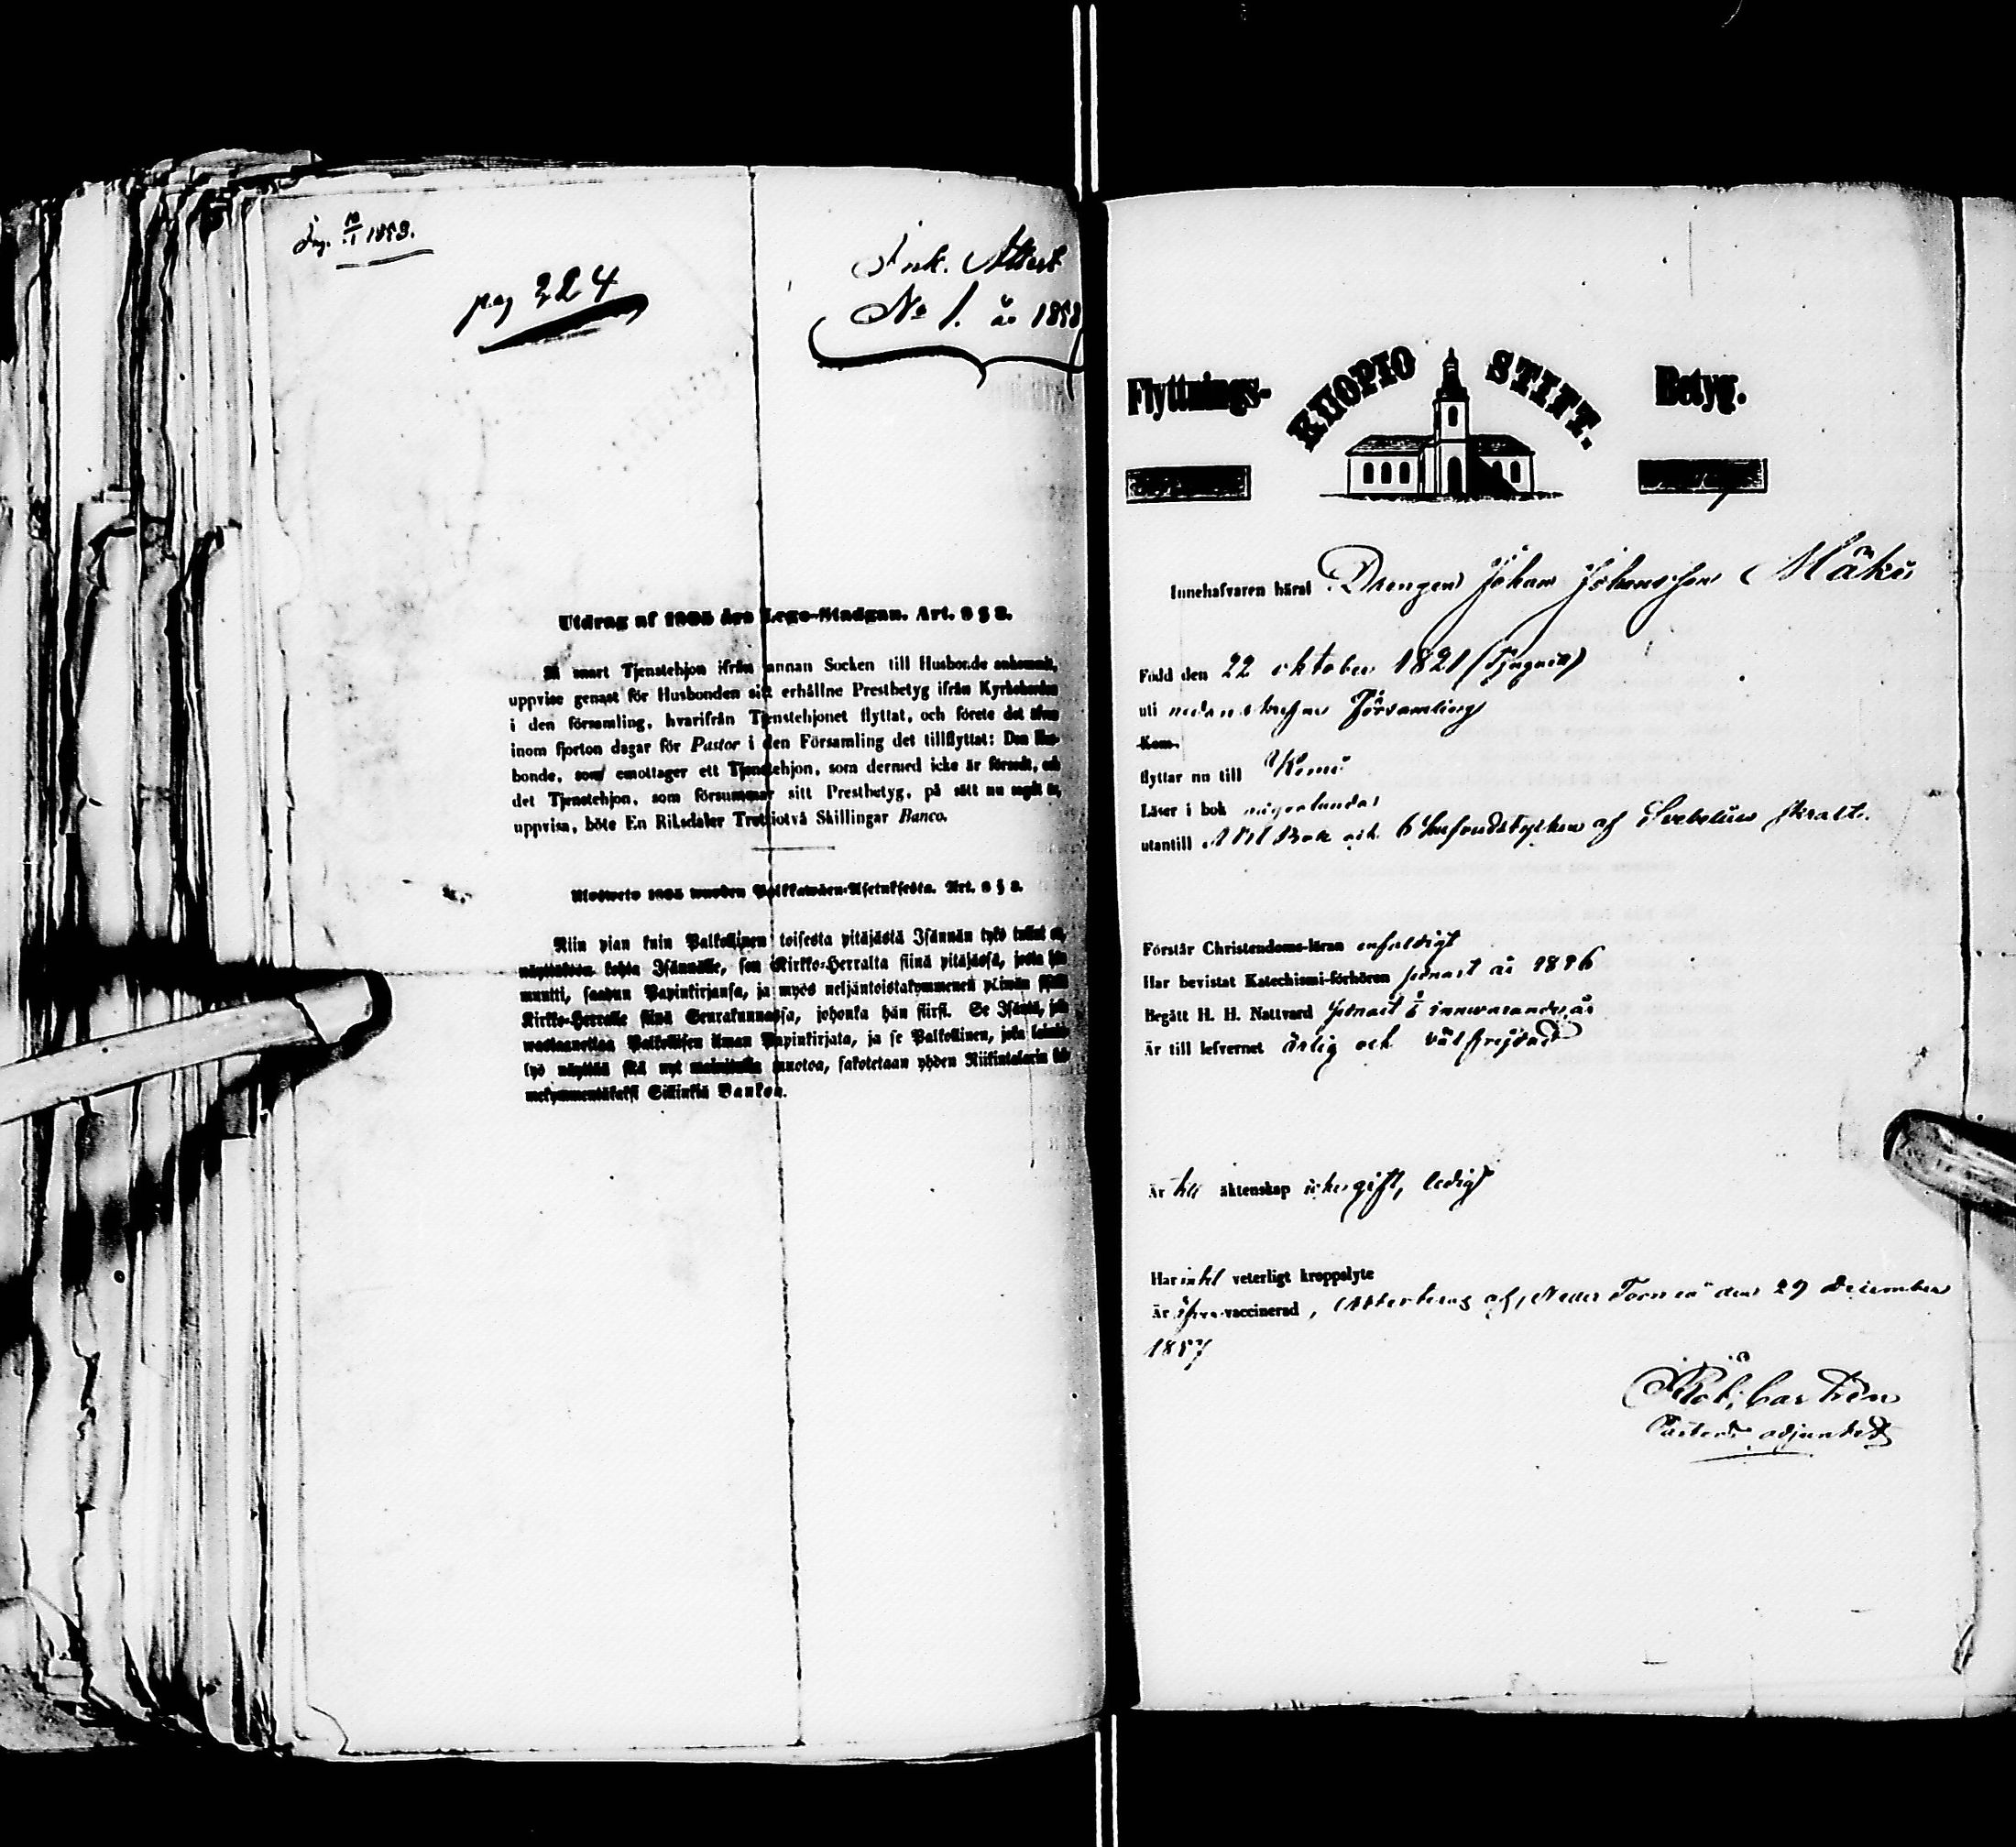 Ing. 10/1 1858.
pag 224
Ink. Attest
No 1. år 1858
Utdrag af 1805 års Lego-Stadgan. Art. 8 § 2.
Så snart Tjenstehjon ifrån annan Socken till Husbonde ankommit,
uppvise genast för Husbonden sitt erhållne Prestbetyg ifrån Kyrkoherden
i den församling, hvarifrån Tjenstehjonet flyttat, och förete det äfven
inom fjorton dagar för Pastor i den Församling det tillflyttat: Den Hus-
bonde, som emottager ett Tjenstehjon, som dermed icke är försedt, och
det Tjenstehjon, som försummar sitt Prestbetyg, på sätt nu sagdt är,
uppvisa, böte En Riksdaler Trettiotvå Skillingar Banco.
Ulosweto 1805 wuoden Palkkawäen-Asetuksesta. Art. 8 § 2.
Niin pian kuin Palkollinen toisesta pitäjästä Isännän tykö tullut on,
näyttäköön kohta Isännälle, sen Kirkko-Herralta siinä pitäjässä, josta hän
muutti, saadun Papinkirjansa, ja myös neljäntoistakymmenen päiwän sisällä
Kirkko-Herralle siinä Seurakunnassa, johonka hän siirsi. Se Isäntä, joka
wastaanottaa Palkollisen ilman Papinkirjata, ja se Palkollinen, joka laimin-
lyö näyttää sitä nyt mainitulla muotoa, sakotetaan yhden Riikintalarin kol-
mekymmentäkaksi Sillinkiä Bankoa.
Flyttnings- KUOPIO STIFT. Betyg.
Innehafvaren häraf Drengen Johan Johansson Mäki
Född den 22 oktober 1821
uti nedanskrefne Församling
Kom.
flyttar nu till Kemi
Läser i bok någorlunda
utantill ABC Bok och 6 hufvudstycken af Svebelii skrifter.
Förstår Christendoms-läran enfaldigt
Har bevistat Katechismi-förhören senast år 1856
Begått H. H. Nattvard senast i innevarande år
Är till lefvernet ärlig och välfrejdad
Är till äktenskap icke gift, ledig
Har intet veterligt kroppslyte
Är vaccinerad, Attesteras af, Neder Torneå den 29 December
1857
Rob. Carstén
Pastors adjunkt